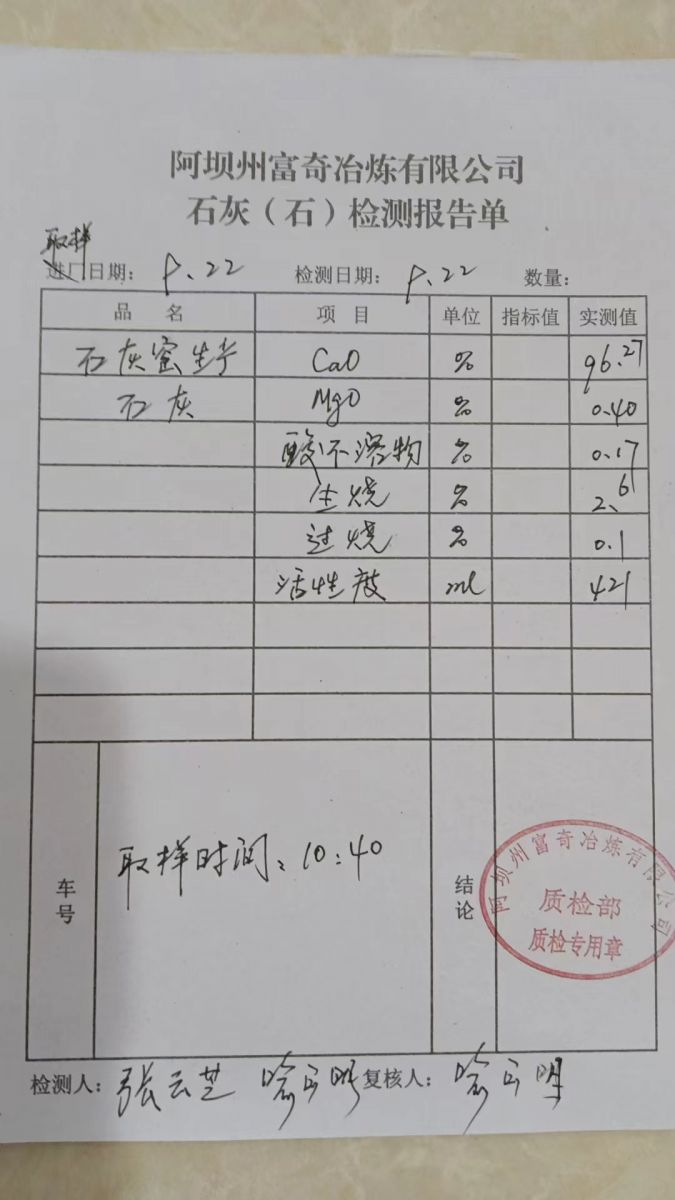 阿坝州富奇冶炼有限公司
石灰（石）检测报告单
取样
进厂日期： 检测日期： 数量：
品 名 项 目 单位 指标值 实测值
石灰窑生产 CaO % 96.27
石灰 MgO % 0.40
酸不溶物 % 0.17
生烧 % 2.6
过烧 % 0.1
活性度 ml 421
车号 取样时间：10:40 结论
阿坝州富奇冶炼有限公司
质检部
质检专用章
检测人：张云芝 喻云明 复核人：喻云明